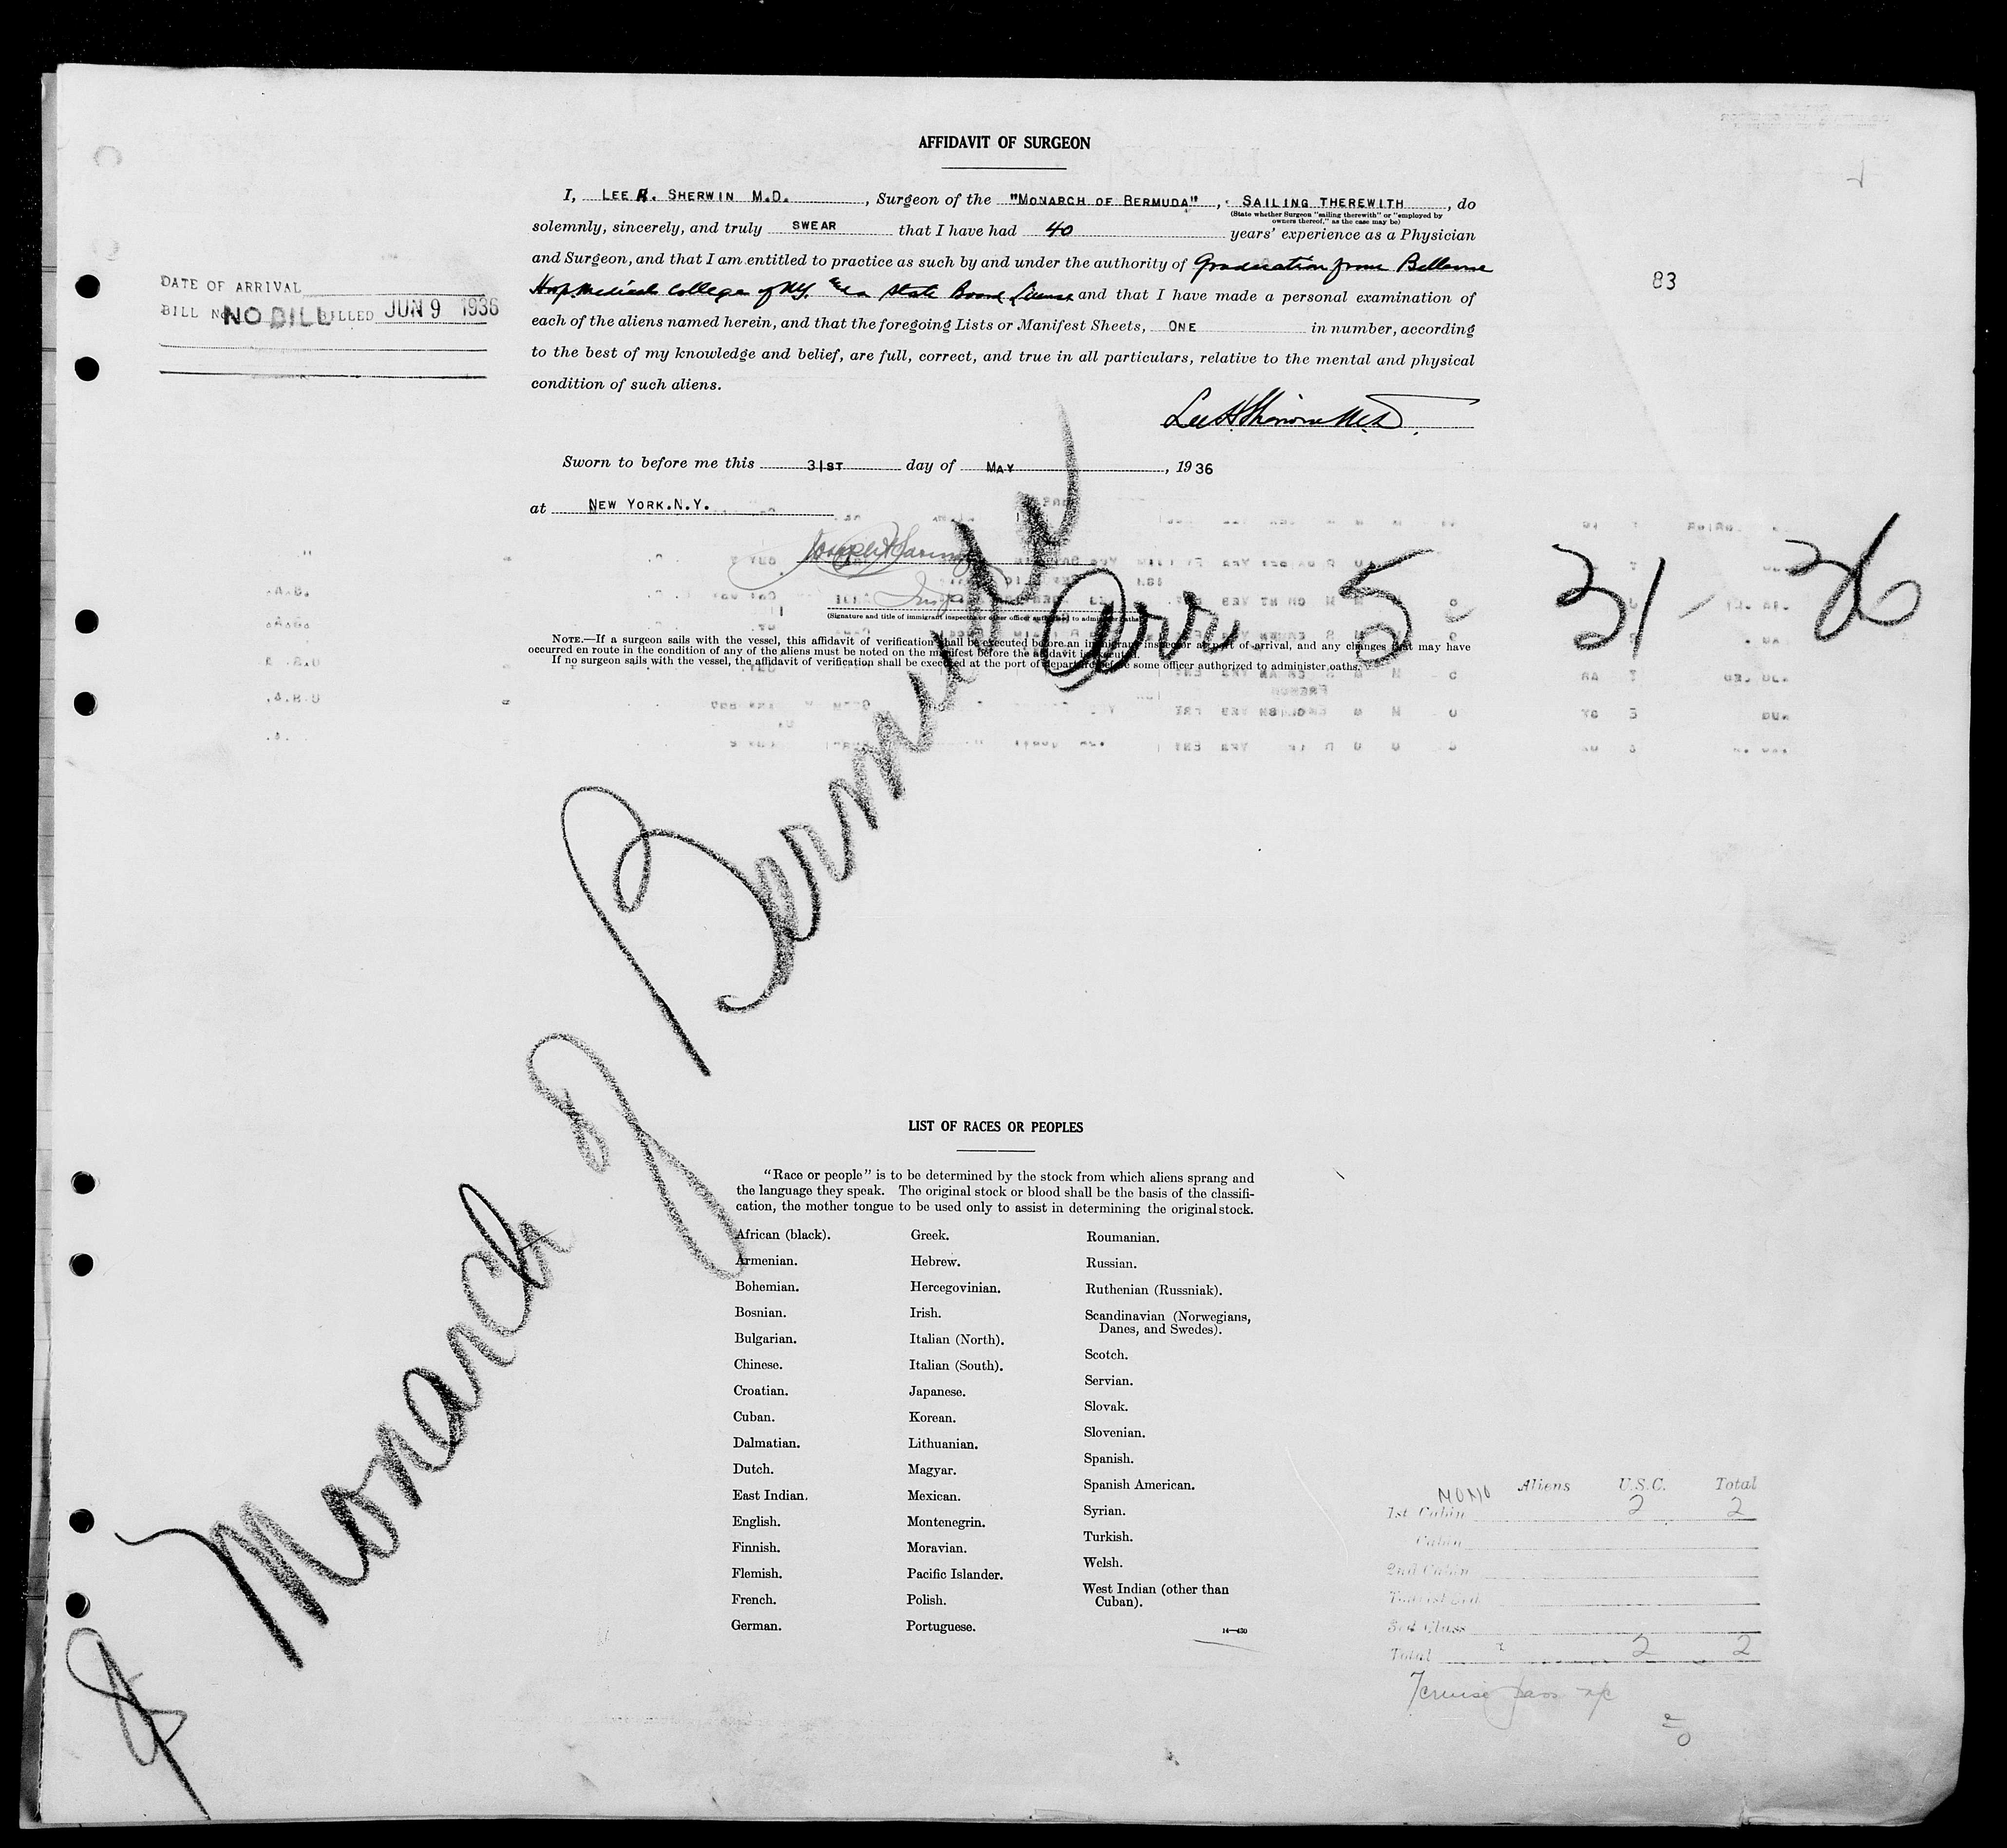 AFFIDAVIT OF SURGEON
I, LEE H. SHERWIN M.D. , Surgeon of the "MONARCH OF BERMUDA" , SAILING THEREWITH , do
(State whether Surgeon "sailing therewith" or "employed by
owners thereof," as the case may be)
solemnly, sincerely, and truly SWEAR that I have had 40 years' experience as a Physician
and Surgeon, and that I am entitled to practice as such by and under the authority of Graduation from Bellevue
Hosp. Medical College of N.Y. State Board License and that I have made a personal examination of
each of the aliens named herein, and that the foregoing Lists or Manifest Sheets, ONE in number, according
to the best of my knowledge and belief, are full, correct, and true in all particulars, relative to the mental and physical
condition of such aliens.
DATE OF ARRIVAL
BILL No NO BILL BILLED JUN 9 1936
83
Lee H Sherwin M.D.
Sworn to before me this 31ST day of MAY , 1936
at NEW YORK.N.Y.
(Signature and title of immigrant inspector or other officer authorized to administer oaths)
NOTE.—If a surgeon sails with the vessel, this affidavit of verification shall be executed before an immigrant inspector at port of arrival, and any changes that may have
occurred en route in the condition of any of the aliens must be noted on the manifest before the affidavit is executed.
If no surgeon sails with the vessel, the affidavit of verification shall be executed at the port of departure before some officer authorized to administer oaths.
Monarch of Bermuda
Arr 5 - 31 - 36
LIST OF RACES OR PEOPLES
"Race or people" is to be determined by the stock from which aliens sprang and
the language they speak. The original stock or blood shall be the basis of the classifi-
cation, the mother tongue to be used only to assist in determining the original stock.
African (black).
Armenian.
Bohemian.
Bosnian.
Bulgarian.
Chinese.
Croatian.
Cuban.
Dalmatian.
Dutch.
East Indian.
English.
Finnish.
Flemish.
French.
German.
Greek.
Hebrew.
Hercegovinian.
Irish.
Italian (North).
Italian (South).
Japanese.
Korean.
Lithuanian.
Magyar.
Mexican.
Montenegrin.
Moravian.
Pacific Islander.
Polish.
Portuguese.
Roumanian.
Russian.
Ruthenian (Russniak).
Scandinavian (Norwegians,
Danes, and Swedes).
Scotch.
Servian.
Slovak.
Slovenian.
Spanish.
Spanish American.
Syrian.
Turkish.
Welsh.
West Indian (other than
Cuban).
14—430
Aliens U.S.C. Total
1st Cabin 2 2
Cabin
2nd Cabin
Tourist 3rd
3rd Class
Total 2 2
7 cruise pass